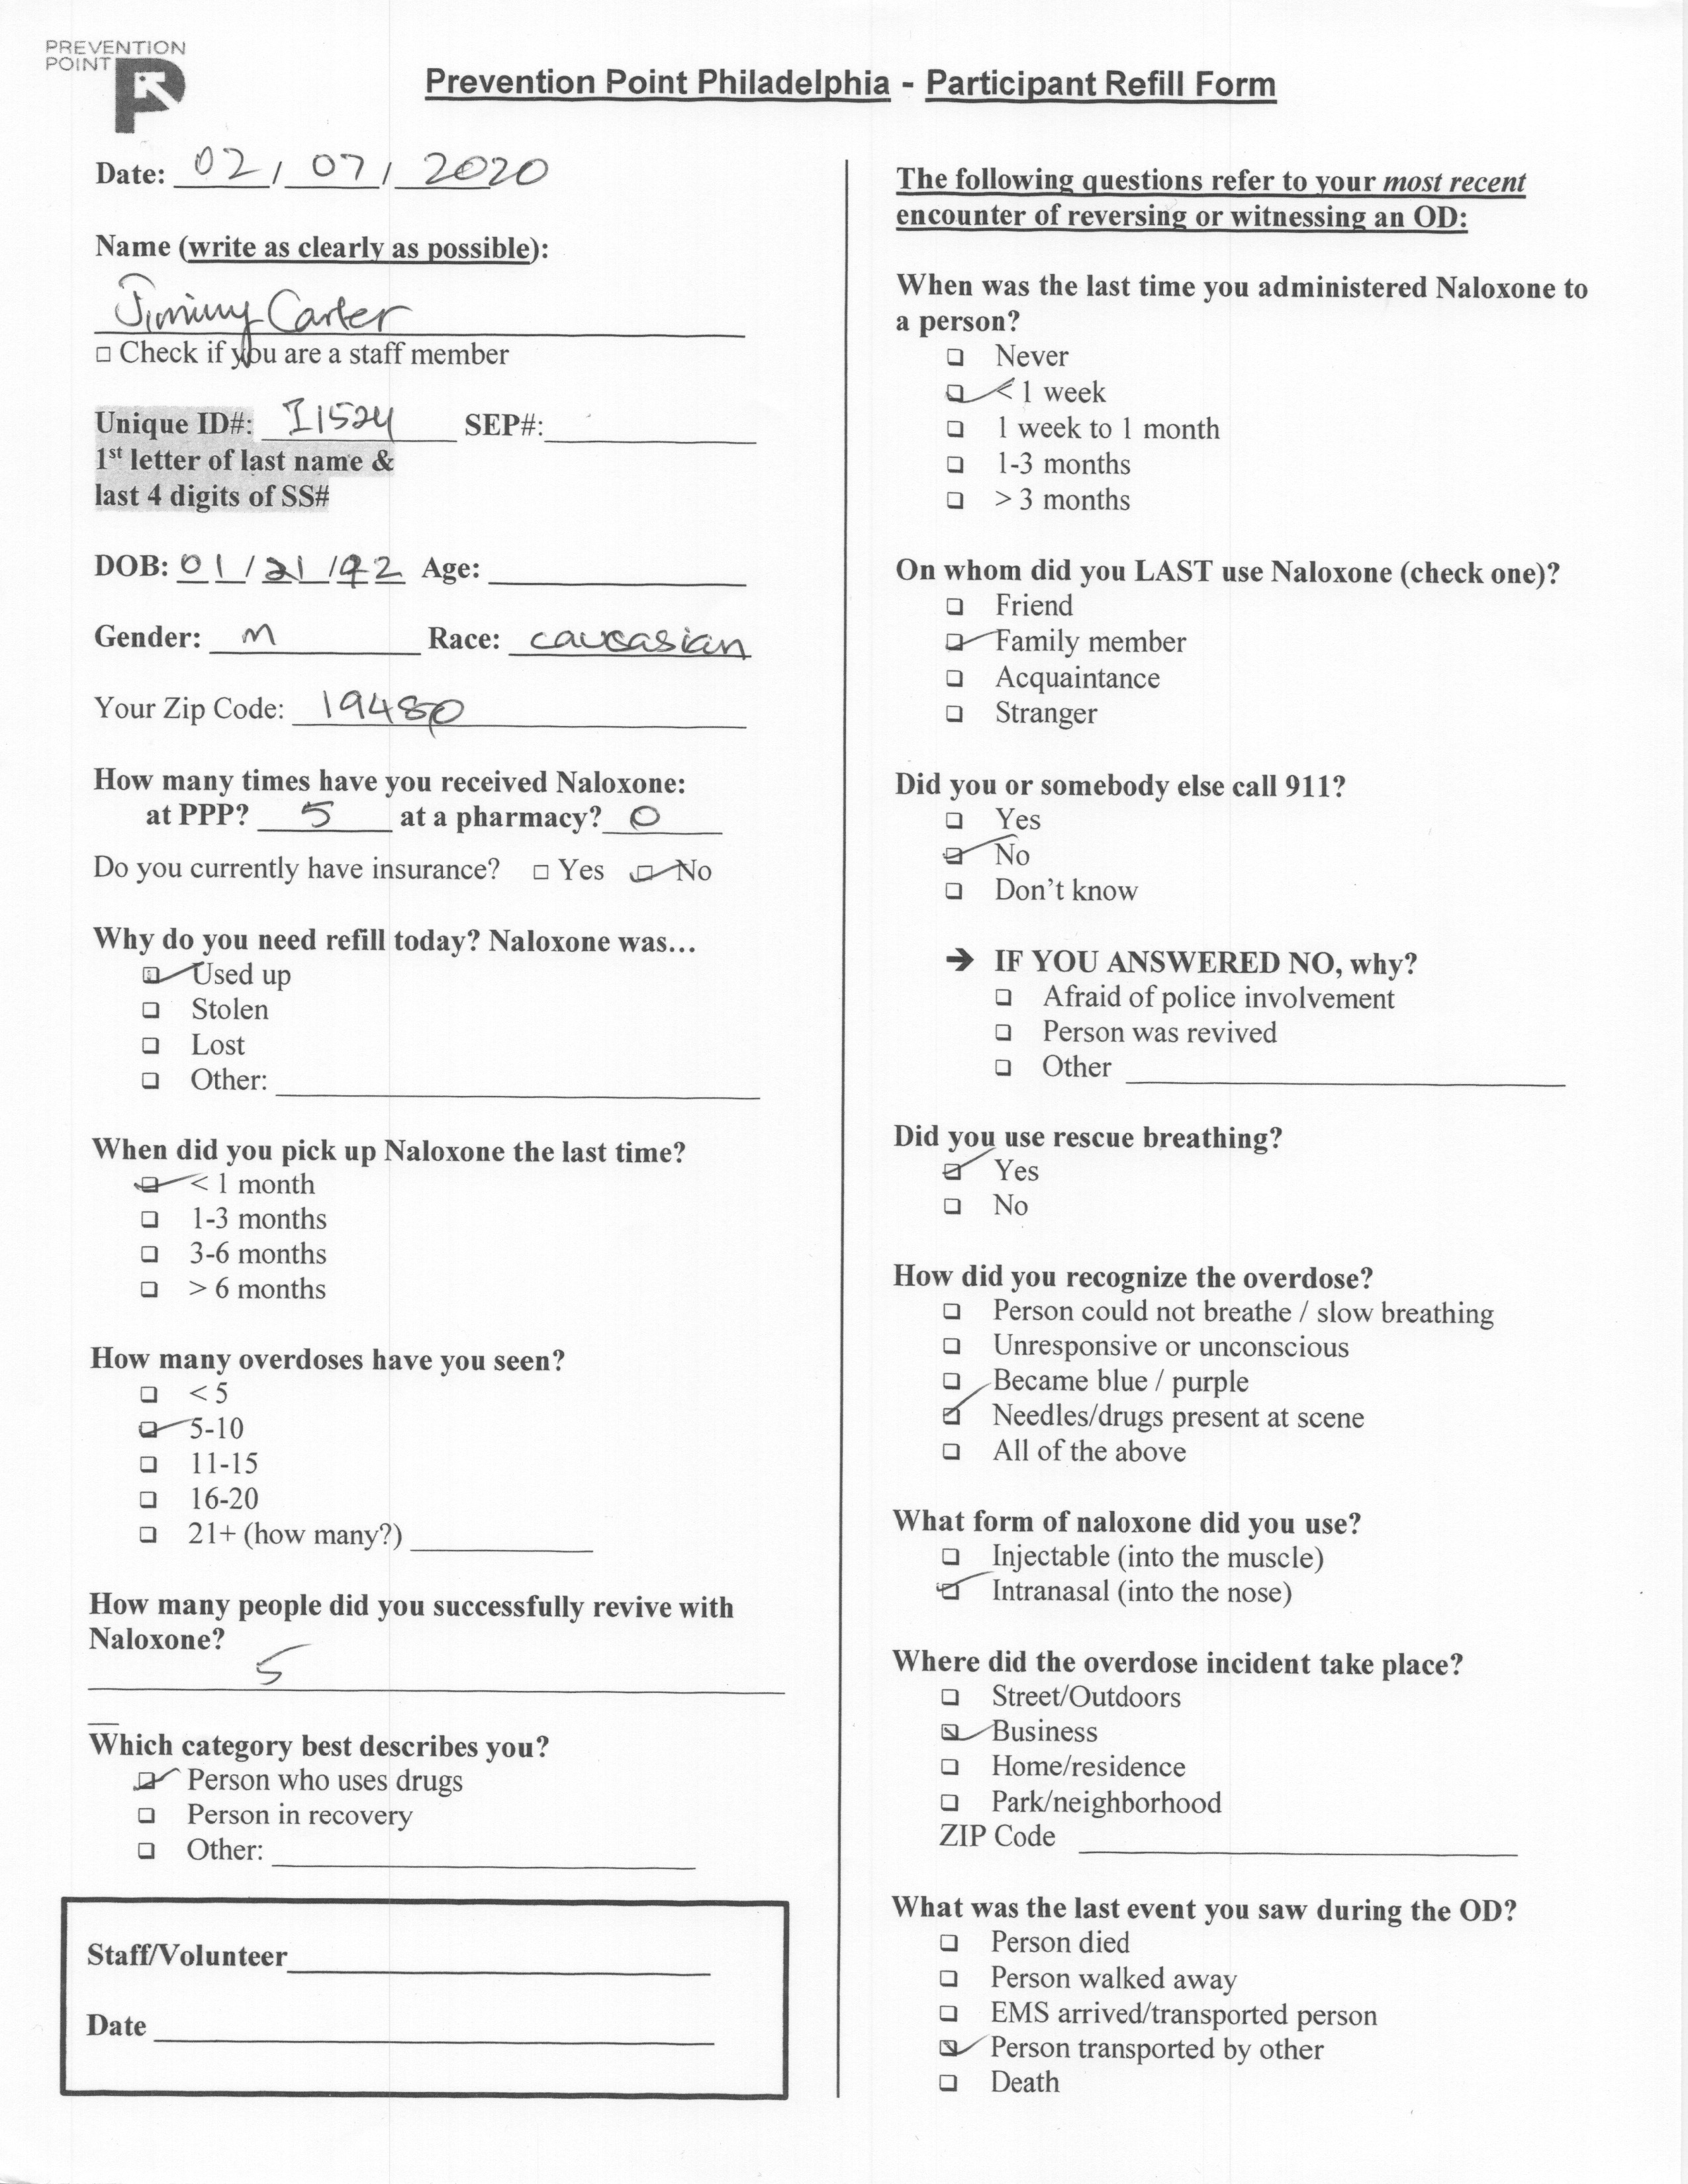 PREVENTION
POINT
Prevention Point Philadelphia - Participant Refill Form
Date: 02 / 07 / 2020
Name (write as clearly as possible):
Jimmy Carter
□ Check if you are a staff member
Unique ID#: I1524 SEP#:
1st letter of last name &
last 4 digits of SS#
DOB: 01/21/92 Age:
Gender: M Race: caucasian
Your Zip Code: 19480
How many times have you received Naloxone:
at PPP? 5 at a pharmacy? 0
Do you currently have insurance? □ Yes ☑ No
Why do you need refill today? Naloxone was...
☑ Used up
□ Stolen
□ Lost
□ Other:
When did you pick up Naloxone the last time?
☑ < 1 month
□ 1-3 months
□ 3-6 months
□ > 6 months
How many overdoses have you seen?
□ < 5
☑ 5-10
□ 11-15
□ 16-20
□ 21+ (how many?)
How many people did you successfully revive with
Naloxone?
5
Which category best describes you?
☑ Person who uses drugs
□ Person in recovery
□ Other:
Staff/Volunteer
Date
The following questions refer to your most recent
encounter of reversing or witnessing an OD:
When was the last time you administered Naloxone to
a person?
□ Never
☑ < 1 week
□ 1 week to 1 month
□ 1-3 months
□ > 3 months
On whom did you LAST use Naloxone (check one)?
□ Friend
☑ Family member
□ Acquaintance
□ Stranger
Did you or somebody else call 911?
□ Yes
☑ No
□ Don't know
➔ IF YOU ANSWERED NO, why?
□ Afraid of police involvement
□ Person was revived
□ Other
Did you use rescue breathing?
☑ Yes
□ No
How did you recognize the overdose?
□ Person could not breathe / slow breathing
□ Unresponsive or unconscious
□ Became blue / purple
☑ Needles/drugs present at scene
□ All of the above
What form of naloxone did you use?
□ Injectable (into the muscle)
☑ Intranasal (into the nose)
Where did the overdose incident take place?
□ Street/Outdoors
☑ Business
□ Home/residence
□ Park/neighborhood
ZIP Code
What was the last event you saw during the OD?
□ Person died
□ Person walked away
□ EMS arrived/transported person
☑ Person transported by other
□ Death